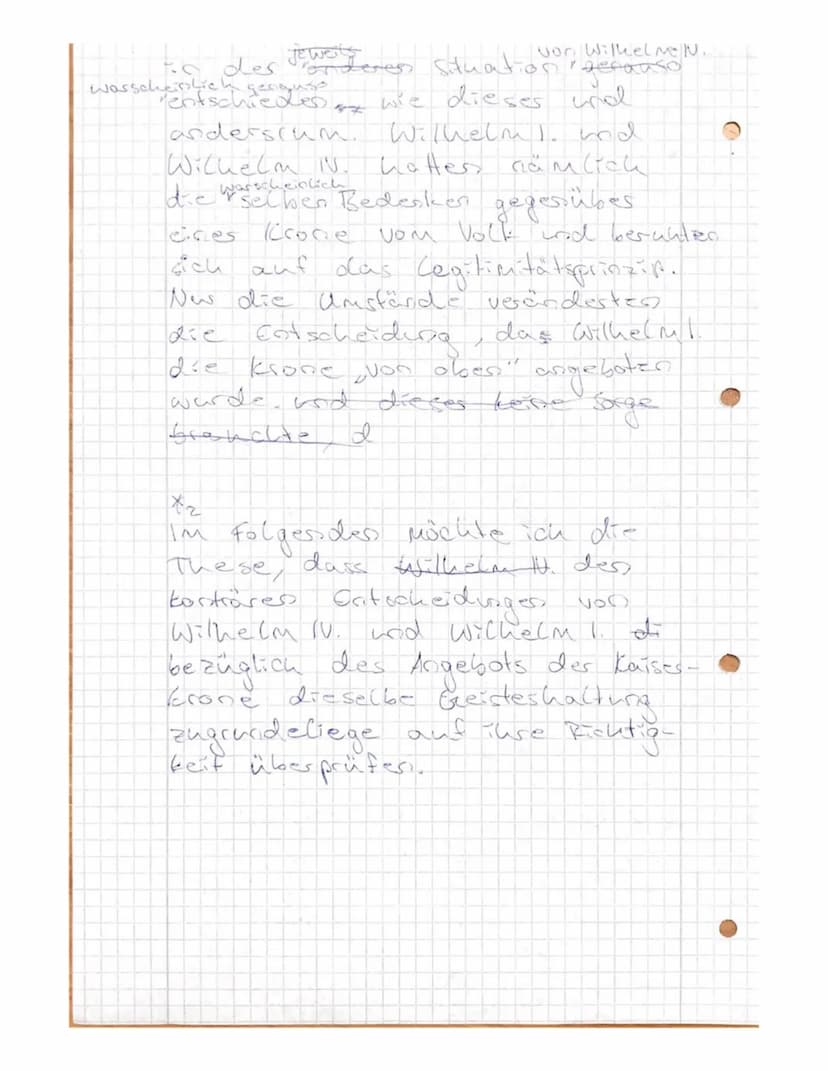 jeweils von Wilhelm IV.
in der anderen Situation genauso
warscheinlich genauso
entschieden wie dieser und
andersrum. Wilhelm I. und
Wilhelm IV. hatten nämlich
warscheinlich
die selben Bedenken gegenüber
einer Krone vom Volk und beruhten
sich auf das Legitimitätsprinzip.
Nur die Umstände veränderten
die Entscheidung, das Wilhelm I.
die Krone „von oben“ angeboten
wurde. und dieser keine sorge
brauchte, d
*2
Im Folgenden möchte ich die
These, dass Wilhelm IV. den
konträren Entscheidungen von
Wilhelm IV. und Wilhelm I. di
bezüglich des Angebots der Kaiser-
krone dieselbe Geisteshaltung
zugrundeliege auf ihre Richtig-
keit überprüfen.